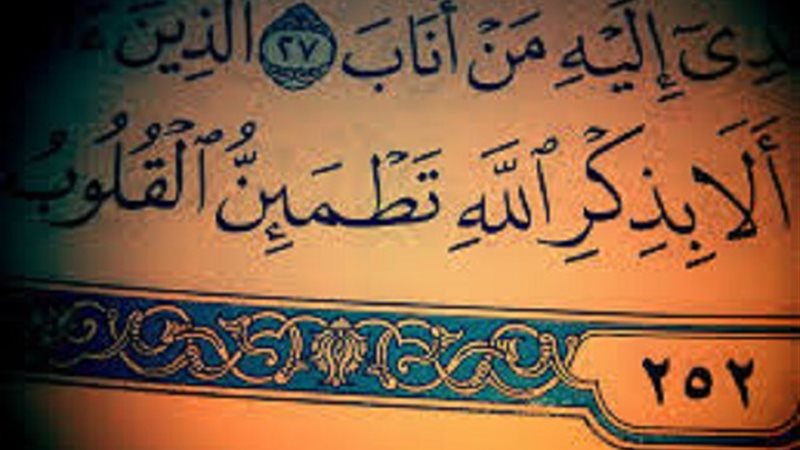 إِلَيْهِ مَنْ أَنَابَ ٢٧ الَّذِينَ
أَلَا بِذِكْرِ ٱللَّهِ تَطْمَئِنُّ ٱلْقُلُوبُ
٢٥٢